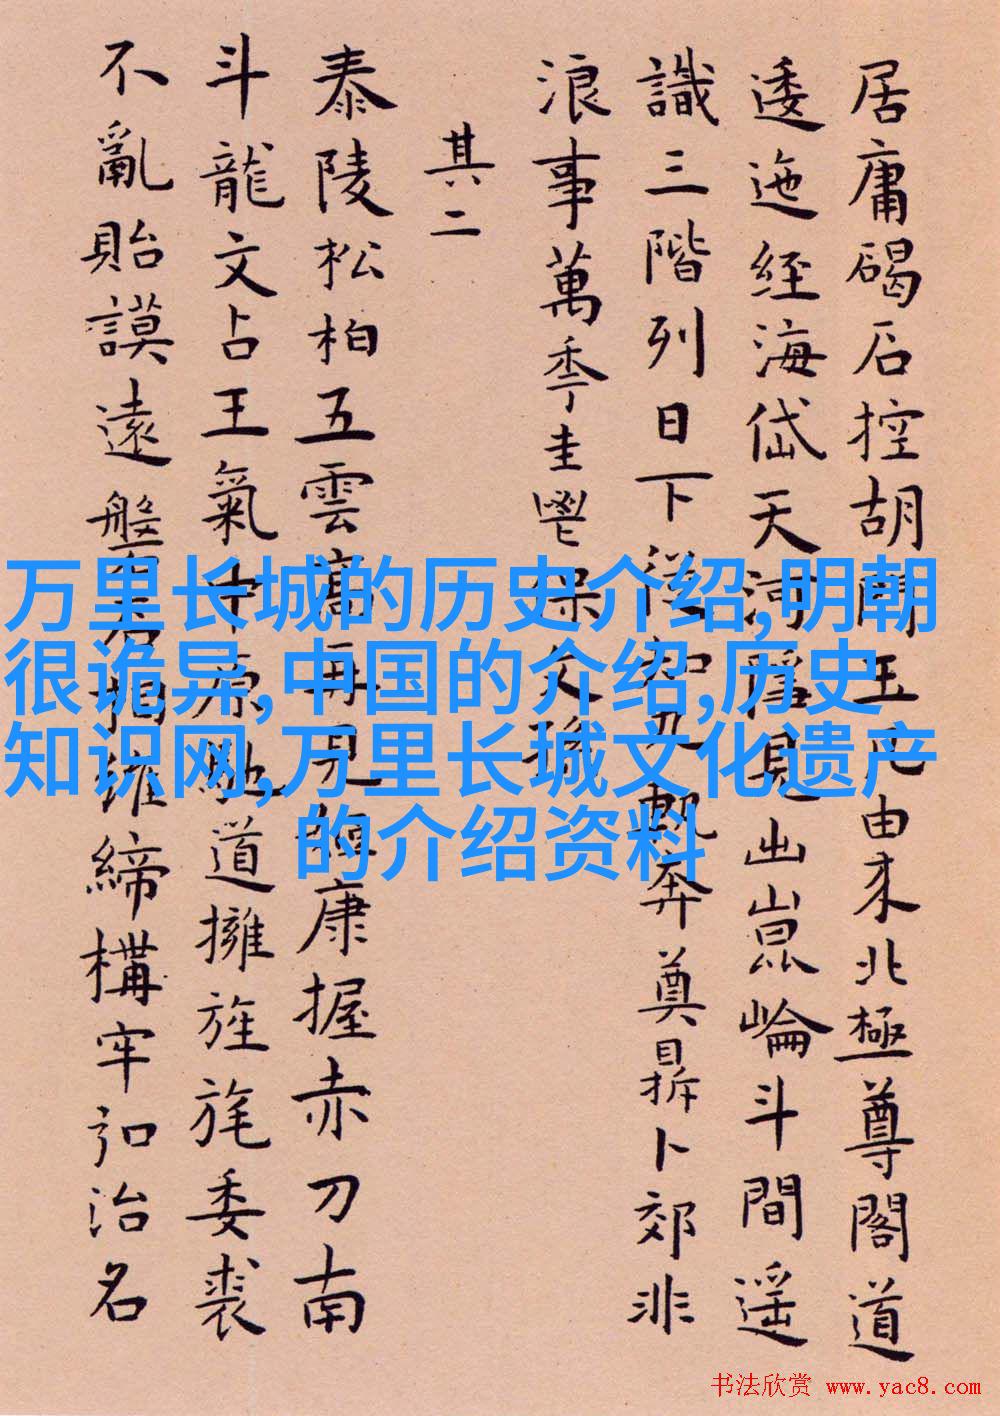 居庸碣石控胡門王由来北極尊閣道
逶迤經海岱天河隱見出崑崙斗間遥
識三階列日下後丑執奔奠鼎卜郊非
浪事萬季圭鬯保文孫
其二
泰陵松柏五雲再見康握赤刀南
斗龍文占王氣中原馳道擁旌旄委裘
不亂貽謨遠盤石維締構牢治名
万里长城的历史介绍,明朝
很诡异,中国的介绍,历史
知识网,万里长城文化遗产
的介绍资料
书法欣赏 www.yac8.com